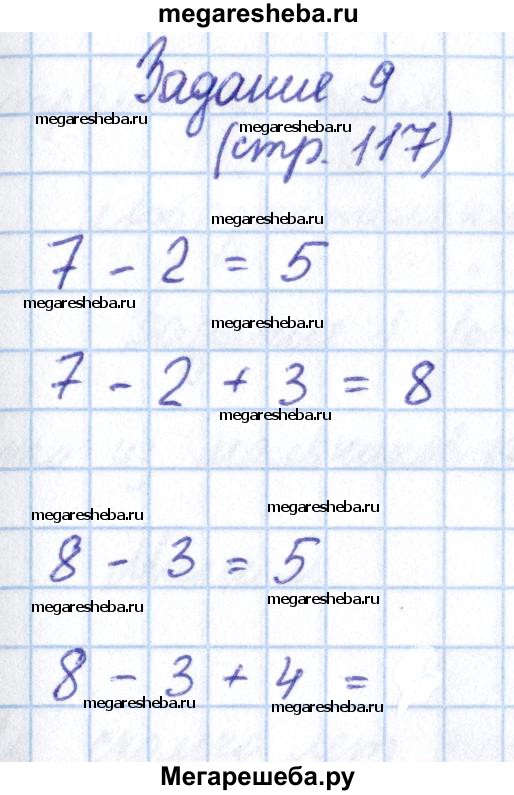 megaresheba.ru
Задание 9
megaresheba.ru
megaresheba.ru
(стр. 117)
megaresheba.ru
7 - 2 = 5
megaresheba.ru
megaresheba.ru
7 - 2 + 3 = 8
megaresheba.ru
megaresheba.ru
megaresheba.ru
8 - 3 = 5
megaresheba.ru
megaresheba.ru
8 - 3 + 4 =
megaresheba.ru
megaresheba.ru
Мегарешеба.ру